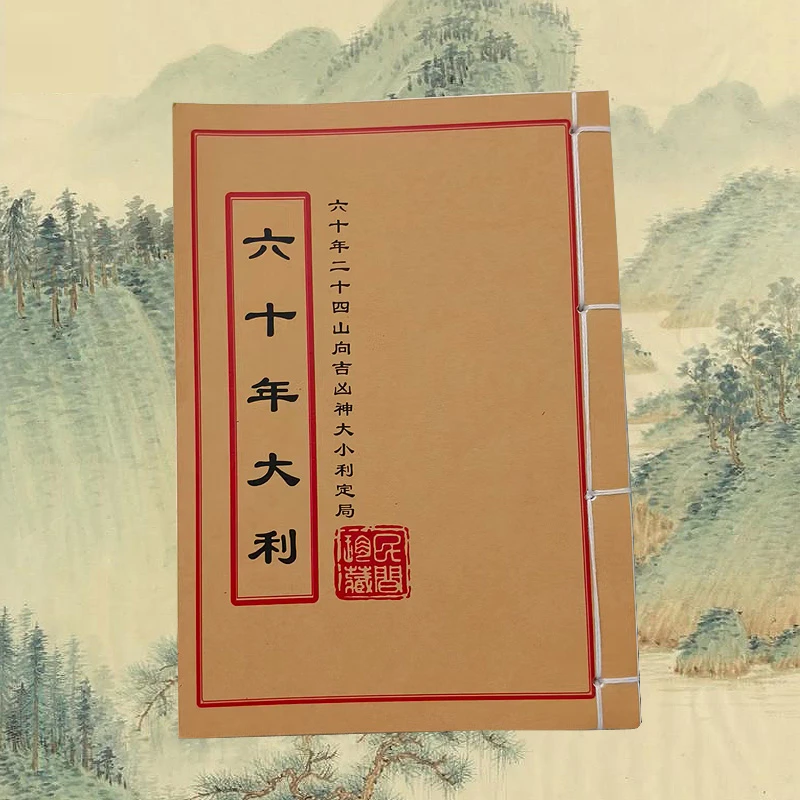 六十年大利
六十年二十四山向吉凶神大小利定局
民間珍藏